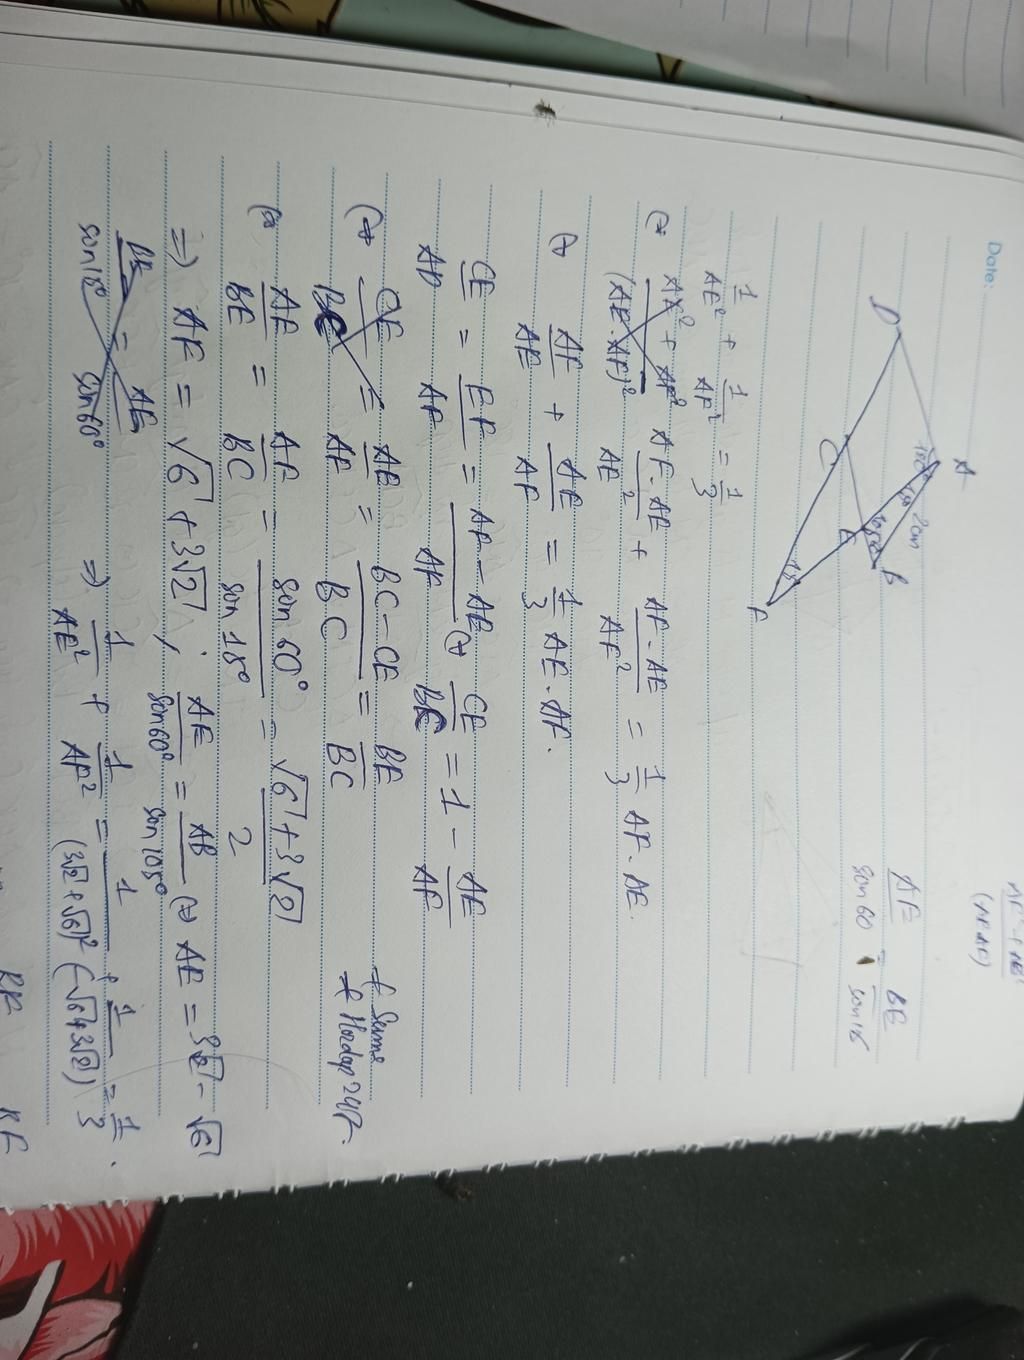 Date:
A
15°
2cm
D
B
C
E
F
AE/sin60 = BE/sin15
1/AE² + 1/AF² = 1/3
(=) AF.AE/AE² + AF.AE/AF² = 1/3 AF.AE.
(=) AF/AE + AE/AF = 1/3 AE.AF.
CE/AD = EF/AF = AF-AE/AF (=) CE/BC = 1 - AE/AF
(=) CE/BC = AE/AF = BC-CE/BC = BE/BC
(=) AE/BE = AF/BC = sin60°/sin15° = √6+3√2/2
=) AF = √6+3√2 ; AE/sin60° = AB/sin105° (=) AE = 3√2-√6
BE/sin15° = AE/sin60°
=) 1/AE² + 1/AF² = 1/(3√2+√6)² + 1/(-√6+3√2) = 1/3.